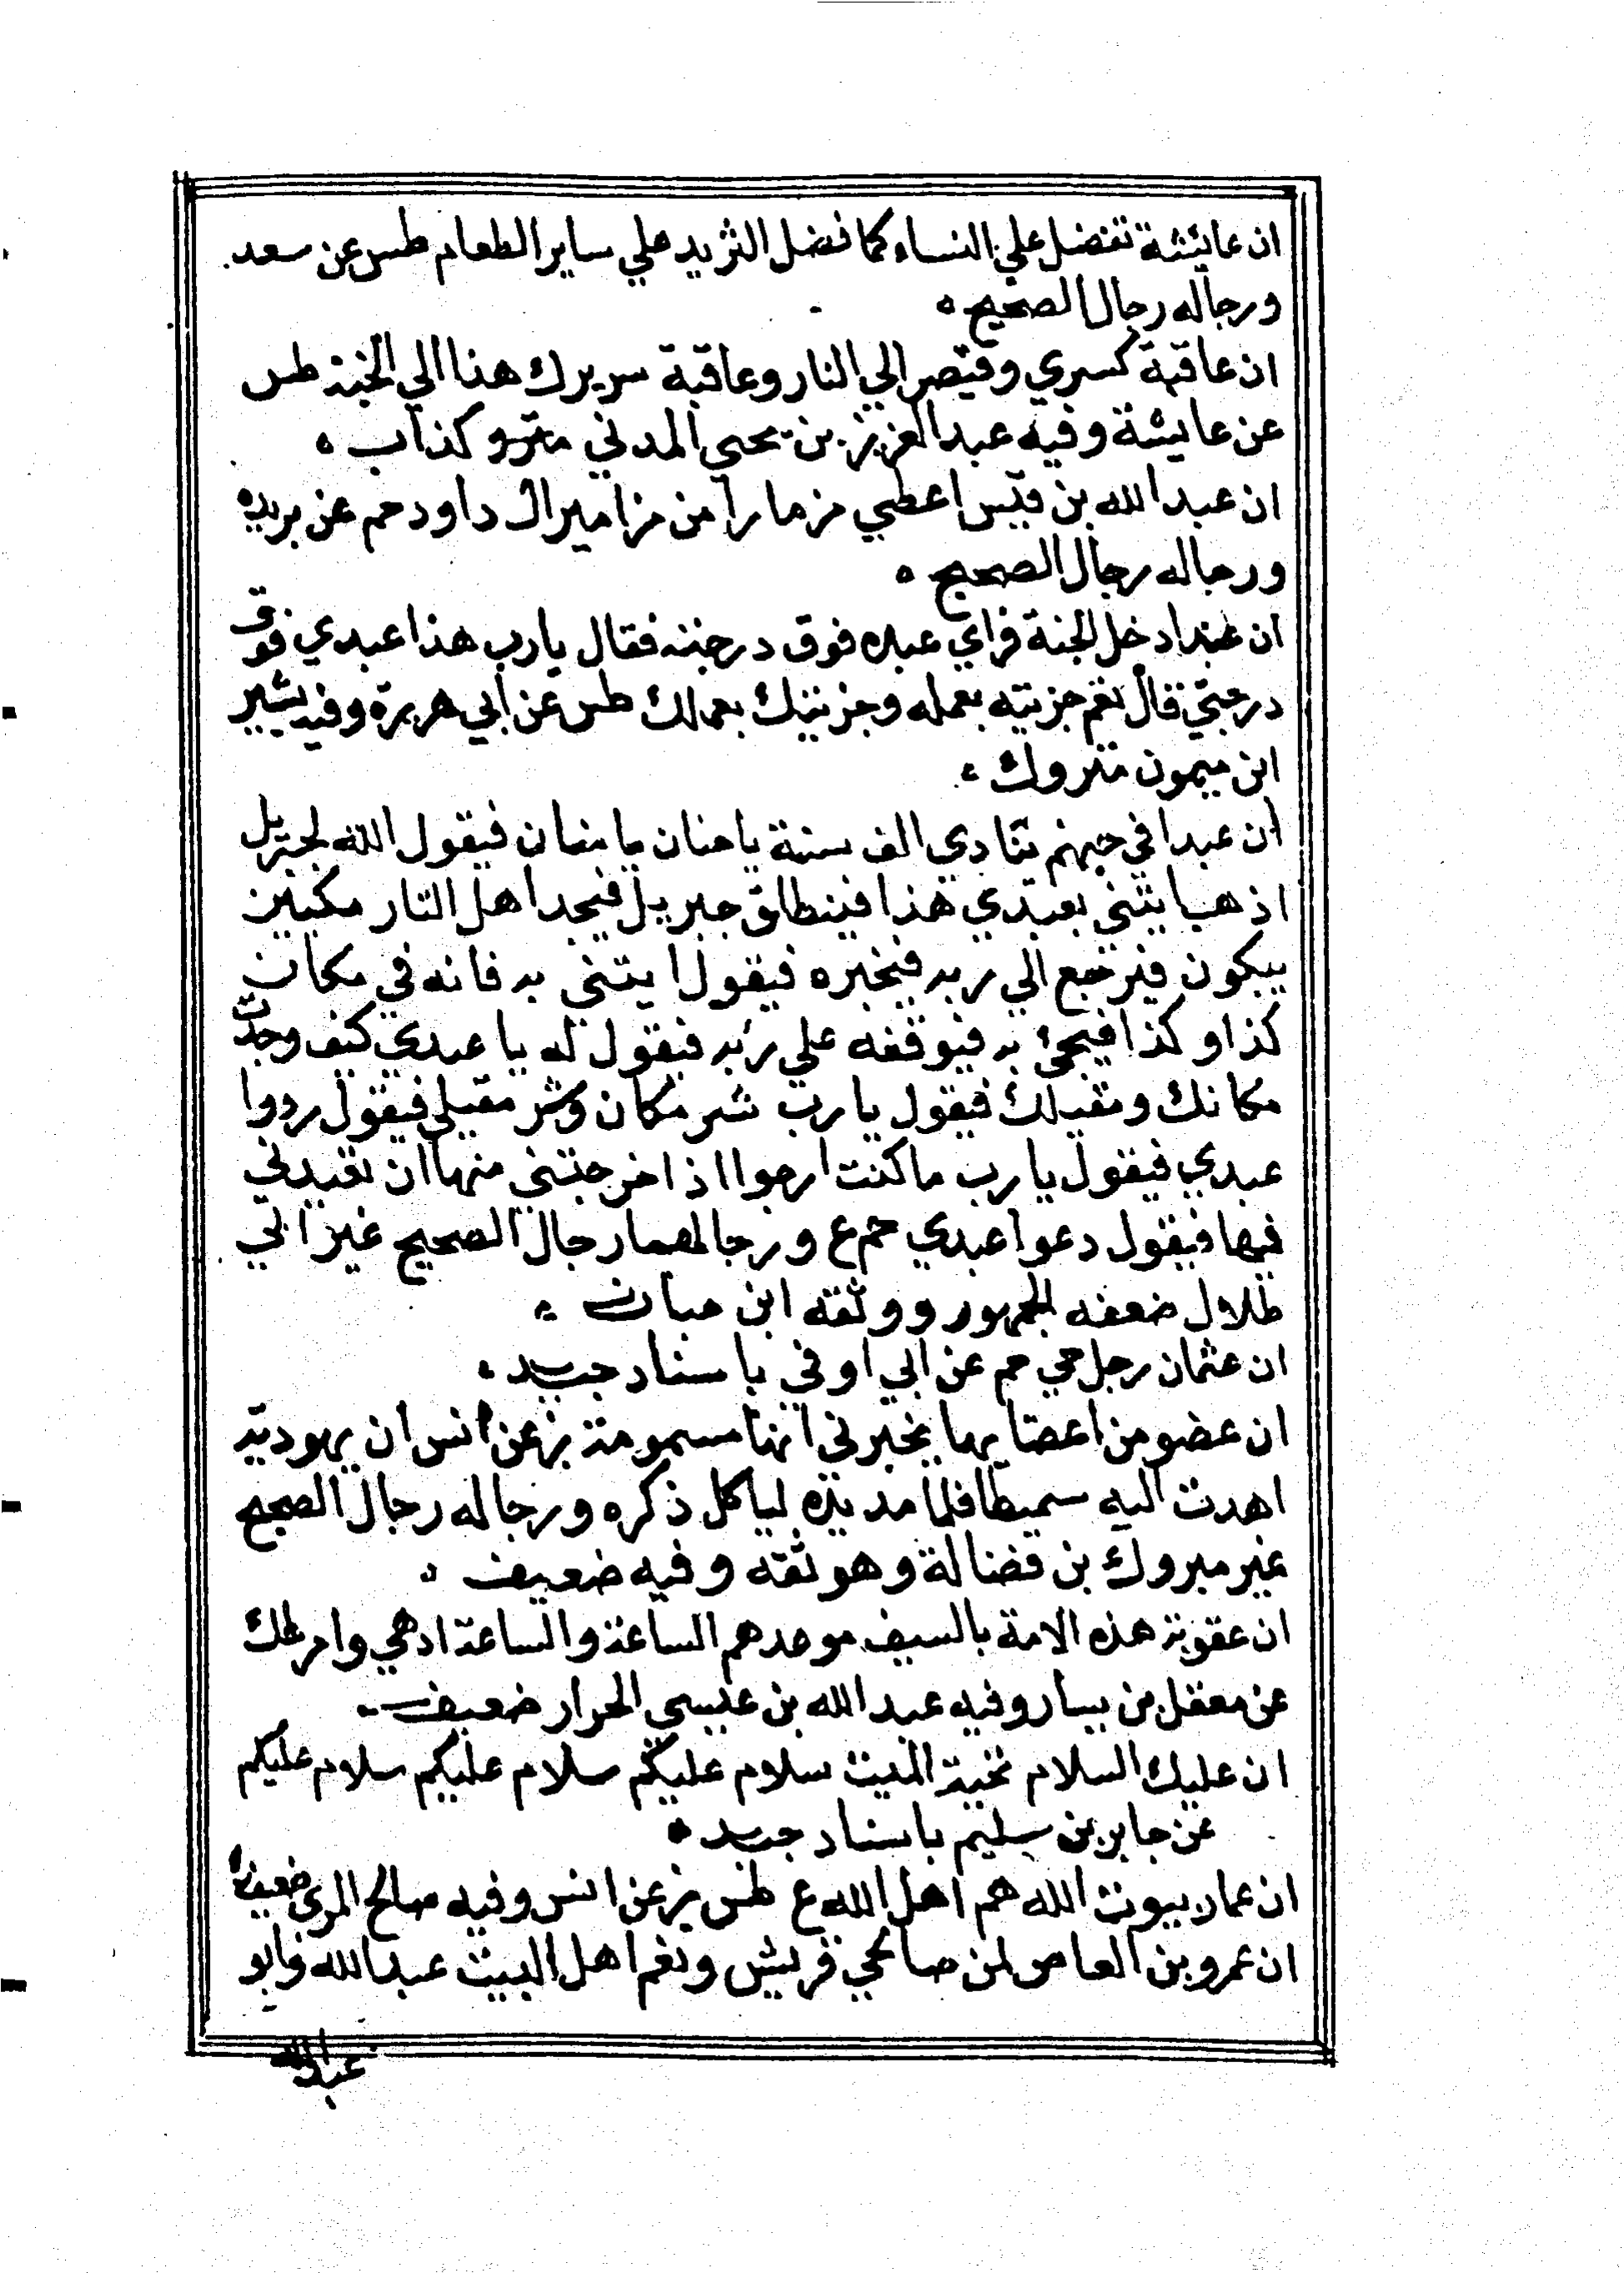 ان عايشة تفضل علي النساء كما فضل الثريد علي ساير الطعام طس عن سعد
ورجاله رجال الصحيح
ان عاقبة كسري وقيصر الي النار وعاقبة سريرك هذا الي الجنة طس
عن عايشة وفيه عبد العزيز بن يحي المدني متروك كذاب
ان عبد الله بن قيس اعطي مزمارا من مزامير ال داود حم عن بريده
ورجاله رجال الصحيح
ان عبدا دخل الجنة فراي عبده فوق درجته فقال يارب هذا عبدي فوق
درجتي قال نعم جزيته بعمله وجزيتك بعملك طس عن ابي هريرة وفيه بشير
ابن ميمون متروك
ان عبدا في جهنم ينادي الف سنة يا حنان يا منان فيقول الله لجبريل
اذهب ايتني بعبدي هذا فينطلق جبريل فيجد اهل النار مكبين
يبكون فيرجع الي ربه فيخبره فيقول ايتني به فانه في مكان
كذا وكذا فيجئ به فيوقفه علي ربه فيقول له يا عبدي كيف وجدت
مكانك ومقيلك فيقول يا رب شر مكان وشر مقيلي فيقول ردوا
عبدي فيقول يا رب ما كنت ارجوا اذ اخرجتني منها ان تعيدني
فيها فيقول دعوا عبدي حم ع ورجالهما رجال الصحيح غير ابي
ظلال ضعفه الجمهور ووثقه ابن حبان
ان عثمان رجل حي حم عن ابي اوفي باسناد جيد
ان عضو من اعضايها يخبرني انها مسمومة بز عن انس ان يهوديه
اهدت اليه سميطا فلما مد يده لياكل ذكره ورجاله رجال الصحيح
غير مبروك بن فضالة وهو ثقه وفيه ضعيف
ان عقوبة هذه الامة بالسيف موعدهم الساعة والساعة ادهي وامر طك
عن معقل بن يسار وفيه عبد الله بن عيسي الحرار ضعيف
ان عليك السلام تحية الميت سلام عليكم سلام عليكم سلام عليكم
عن جابر بن سليم باسناد جيد
ان عمار بيوت الله هم اهل الله ع طس بز عن انس وفيه صالح المري ضعيف
ان عمرو بن العاص لمن صالحي قريش ونعم اهل البيت عبد الله وابو
عبد الله